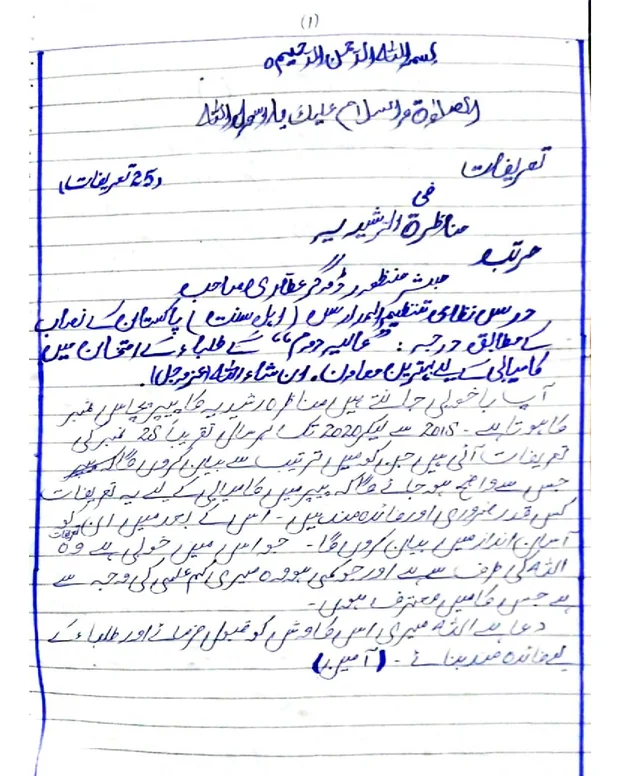 (1)
بسم اللہ الرحمن الرحیم ہ
الصلوٰۃ والسلام علیک یا رسول اللہ
تعریفات (25 تعریفات)
فی
مناظرۃ الرشیدیہ
مرتب
مبشر منظور ڈوگر عطاری صاحب
درس نظامی تنظیم المدارس (اہل سنت) پاکستان کے نصاب
کے مطابق درجہ: "عالیہ دوم" کے طلباء کے امتحان میں
کامیابی کے لیے بہترین معاون۔ ان شاء اللہ (عزوجل)
آپ باخوبی جانتے ہیں مناظرہ رشیدیہ کا پیپر پچاس نمبر
کا ہوتا ہے۔ 2015 سے لیکر 2020 تک ہر سال تقریباً 25 نمبر کی
تعریفات آئی ہیں جن کو میں ترتیب سے بیان کروں گا
جس سے واضح ہو جائے گا کہ پیپر میں کامیابی کے لیے یہ تعریفات
کس قدر ضروری اور فائدہ مند ہیں۔ اس کے بعد میں ان تعریفات کو
آسان انداز میں بیان کروں گا۔ جو اس میں خوبی ہے وہ
اللہ کی طرف سے ہے اور جو کمی ہو وہ میری کم علمی کی وجہ سے
ہے جس کا میں معترف ہوں۔
دعا ہے اللہ میری اس کاوش کو قبول فرمائے اور طلباء کے
لیے فائدہ مند بنائے۔ (آمین)